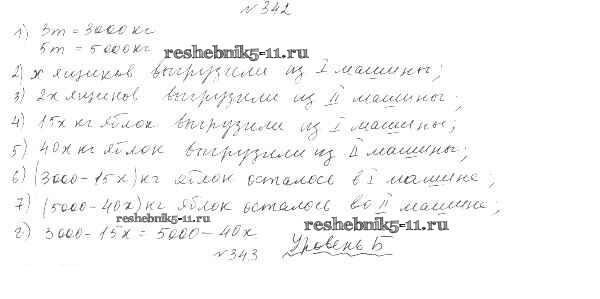 №342
1) 3т = 3000 кг
5т = 5000 кг
reshebnik5-11.ru
2) x ящиков выгрузили из I машины;
3) 2x ящиков выгрузили из II машины;
4) 15x кг яблок выгрузили из I машины;
5) 40x кг яблок выгрузили из II машины;
6) (3000-15x) кг яблок осталось в I машине;
7) (5000-40x) кг яблок осталось во II машине;
reshebnik5-11.ru
reshebnik5-11.ru
8) 3000-15x = 5000-40x
Уровень Б
№343